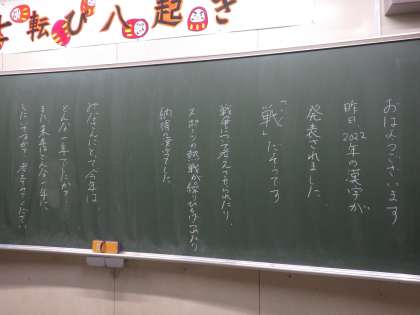 七転び八起き
おはようございます
昨日2022年の漢字が
発表されました。
「戦」だそうです
戦争について考えさせられたり、
スポーツの熱戦が繰りひろげられたり
納得の漢字でした。
みなさんにとって今年は
どんな一年でしたか?
また来年どんな一年に
したいですか?考えてみてください。